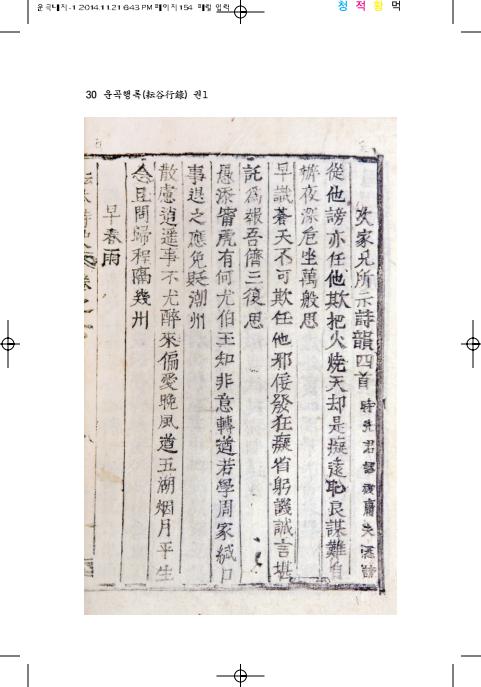 운곡내지-1 2014.11.21 6:43 PM 페이지154 매킨 입력
청 적 황 먹
30 운곡행록(耘谷行錄) 권1
次家兄所示詩韻四首 時先君
從他謗亦任他欺把火燒天却是癡遠恥良謀難自
擠夜深危坐萬般思
早識蒼天不可欺任他邪佞發狂癡省躬譏誠言堪
託爲報吾儕三復思
愚添甯虎有何尤伯玉知非意轉遒若學周家緘口
事退之應免貶潮州
散慮逍遙事不尤醉來偏愛晩風遒五湖烟月平生
念且問歸程隔幾州
早春雨